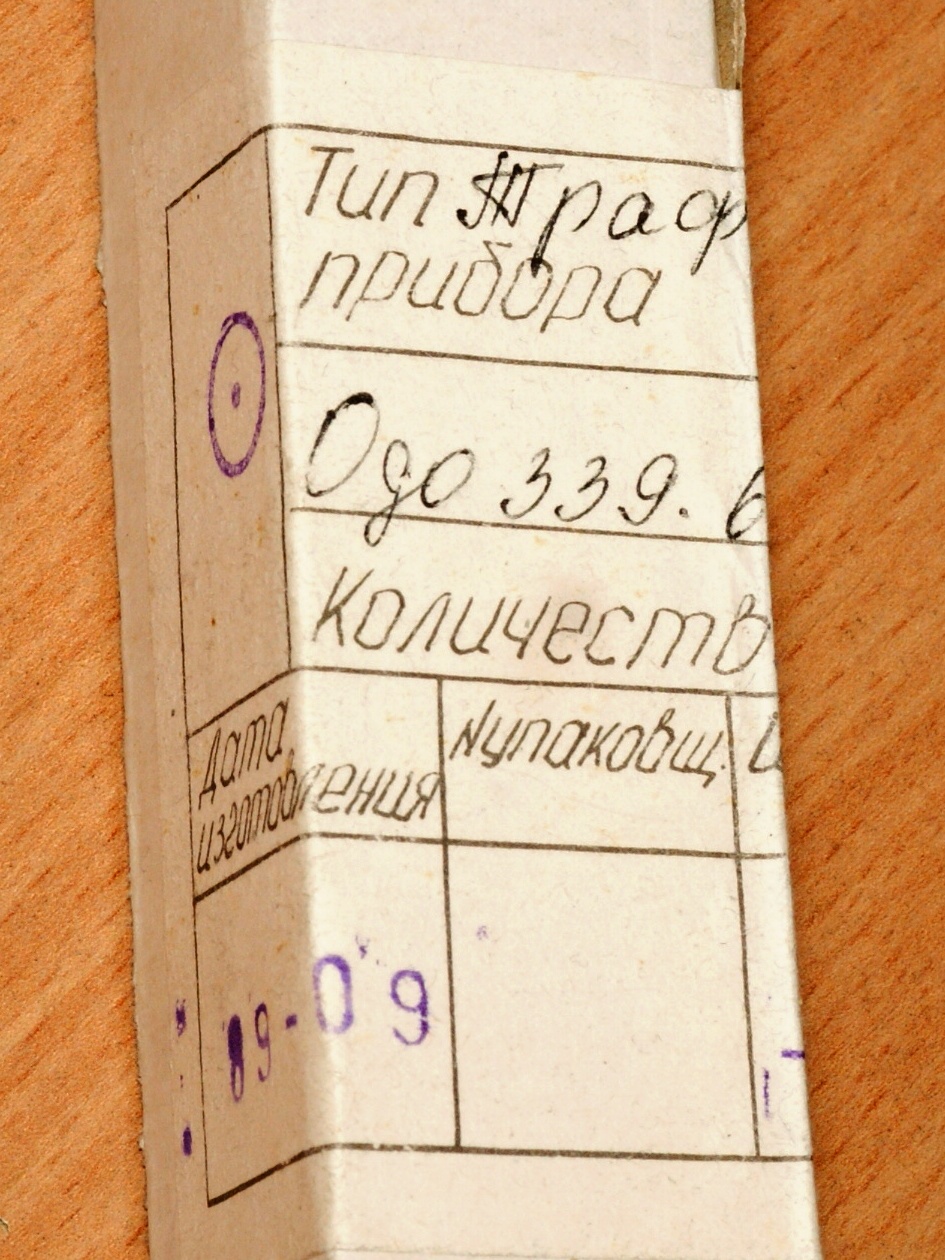 Тип Траф
прибора
Одо 339. 6
Количеств
Дата
изготовления
№упаковщ.
89-09